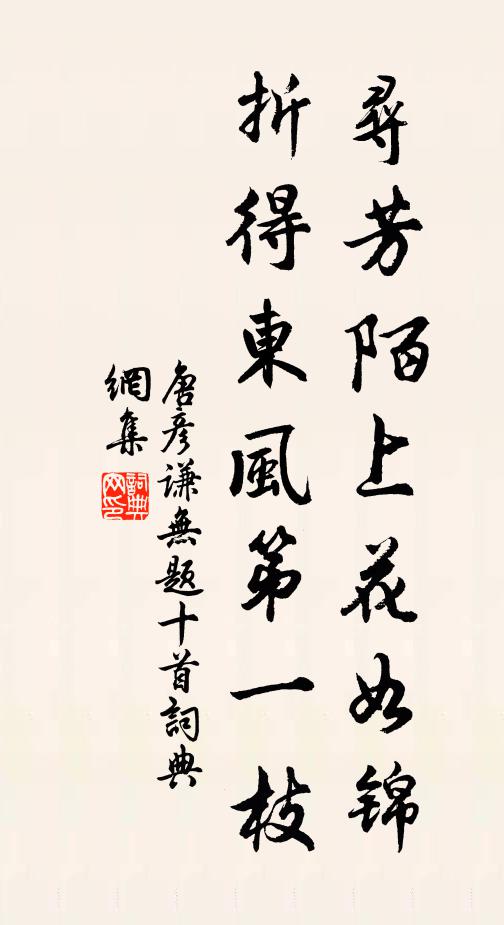 尋芳陌上花如锦
折得東風第一枝
唐彦谦無题十首詞典
網集
詞典网印